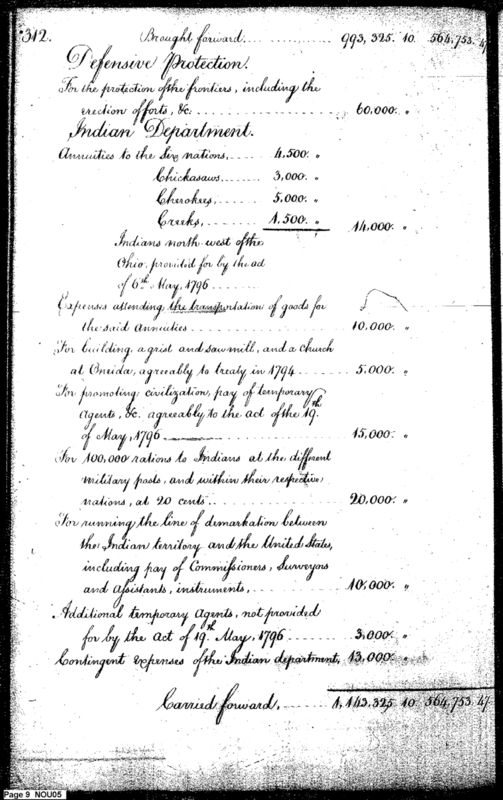 312. Brought forward............ 993,325. 10. 564,753. 47
Defensive Protection.
For the protection of the frontiers, including the
erection of forts, &c. ............ 60,000. "
Indian Department.
Annuities to the Six nations,...... 4,500. "
Chickasaws...... 3,000. "
Cherokees, ....... 5,000. "
Creeks, ........ 1,500. " 14,000. "
Indians north west of the
Ohio, provided for by the act
of 6th May, 1796 ......
Expenses attending the transportation of goods for
the said Annuities............ 10,000. "
For building, a grist and saw mill, and a church
at Oneida, agreeably to treaty in 1794 ...... 5.000. "
For promoting civilization, pay of temporary
Agents, &c. agreeably to the act of the 19th
of May, 1796 ............ 15,000. "
For 100,000 rations to Indians at the different
military posts, and within their respective
nations, at 20 cents............ 20,000. "
For running the line of demarkation between
the Indian territory and the United States,
including pay of Commissioners, Surveyors
and assistants, instruments,.......... 10,000. "
Additional temporary Agents, not provided
for by the Act of 19th May, 1796 ........ 3,000. "
Contingent expenses of the Indian department, 13,000. "
Carried forward, ...... 1,143,325 10. 564,753. 47
Page 9 NOU05